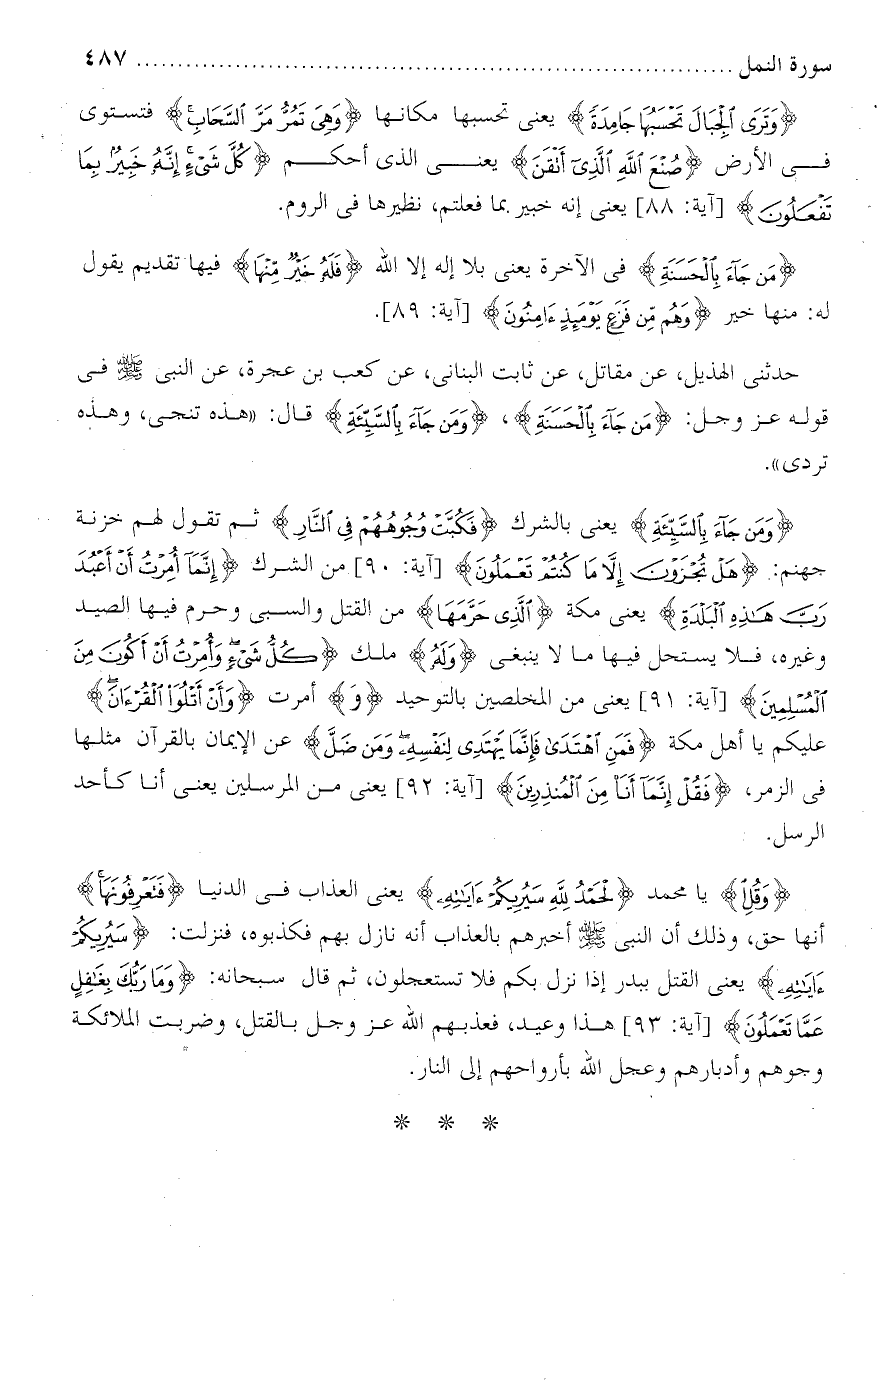 سورة النمل ................................................................ ٤٨٧
﴿وَتَرَى ٱلْجِبَالَ تَحْسَبُهَا جَامِدَةً﴾ يعنى تحسبها مكانها ﴿وَهِىَ تَمُرُّ مَرَّ ٱلسَّحَابِ﴾ فتستوى
فى الأرض ﴿صُنْعَ ٱللَّهِ ٱلَّذِىٓ أَتْقَنَ﴾ يعنى الذى أحكم ﴿كُلَّ شَىْءٍ إِنَّهُۥ خَبِيرٌۢ بِمَا
تَفْعَلُونَ﴾ [آية: ٨٨] يعنى إنه خبير بما فعلتم، نظيرها فى الروم.
﴿مَن جَآءَ بِٱلْحَسَنَةِ﴾ فى الآخرة يعنى بلا إله إلا الله ﴿فَلَهُۥ خَيْرٌ مِّنْهَا﴾ فيها تقديم يقول
له: منها خير ﴿وَهُم مِّن فَزَعٍ يَوْمَئِذٍ ءَامِنُونَ﴾ [آية: ٨٩].
حدثنى الهذيل، عن مقاتل، عن ثابت البنانى، عن كعب بن عجرة، عن النبى ﷺ فى
قوله عز وجل: ﴿مَن جَآءَ بِٱلْحَسَنَةِ﴾، ﴿وَمَن جَآءَ بِٱلسَّيِّئَةِ﴾ قال: «هذه تنجى، وهذه
تردى».
﴿وَمَن جَآءَ بِٱلسَّيِّئَةِ﴾ يعنى بالشرك ﴿فَكُبَّتْ وُجُوهُهُمْ فِى ٱلنَّارِ﴾ ثم تقول لهم خزنة
جهنم: ﴿هَلْ تُجْزَوْنَ إِلَّا مَا كُنتُمْ تَعْمَلُونَ﴾ [آية: ٩٠] من الشرك ﴿إِنَّمَآ أُمِرْتُ أَنْ أَعْبُدَ
رَبَّ هَـٰذِهِ ٱلْبَلْدَةِ﴾ يعنى مكة ﴿ٱلَّذِى حَرَّمَهَا﴾ من القتل والسبى وحرم فيها الصيد
وغيره، فلا يستحل فيها ما لا ينبغى ﴿وَلَهُۥ﴾ ملك ﴿كُلُّ شَىْءٍ وَأُمِرْتُ أَنْ أَكُونَ مِنَ
ٱلْمُسْلِمِينَ﴾ [آية: ٩١] يعنى من المخلصين بالتوحيد ﴿وَ﴾ أمرت ﴿وَأَنْ أَتْلُوَا۟ ٱلْقُرْءَانَ﴾
عليكم يا أهل مكة ﴿فَمَنِ ٱهْتَدَىٰ فَإِنَّمَا يَهْتَدِى لِنَفْسِهِۦ وَمَن ضَلَّ﴾ عن الإيمان بالقرآن مثلها
فى الزمر، ﴿فَقُلْ إِنَّمَآ أَنَا۠ مِنَ ٱلْمُنذِرِينَ﴾ [آية: ٩٢] يعنى من المرسلين يعنى أنا كأحد
الرسل.
﴿وَقُلِ﴾ يا محمد ﴿ٱلْحَمْدُ لِلَّهِ سَيُرِيكُمْ ءَايَـٰتِهِۦ﴾ يعنى العذاب فى الدنيا ﴿فَتَعْرِفُونَهَا﴾
أنها حق، وذلك أن النبى ﷺ أخبرهم بالعذاب أنه نازل بهم فكذبوه، فنزلت: ﴿سَيُرِيكُمْ
ءَايَـٰتِهِۦ﴾ يعنى القتل ببدر إذا نزل بكم فلا تستعجلون، ثم قال سبحانه: ﴿وَمَا رَبُّكَ بِغَـٰفِلٍ
عَمَّا تَعْمَلُونَ﴾ [آية: ٩٣] هذا وعيد، فعذبهم الله عز وجل بالقتل، وضربت الملائكة
وجوههم وأدبارهم وعجل الله بأرواحهم إلى النار.
* * *